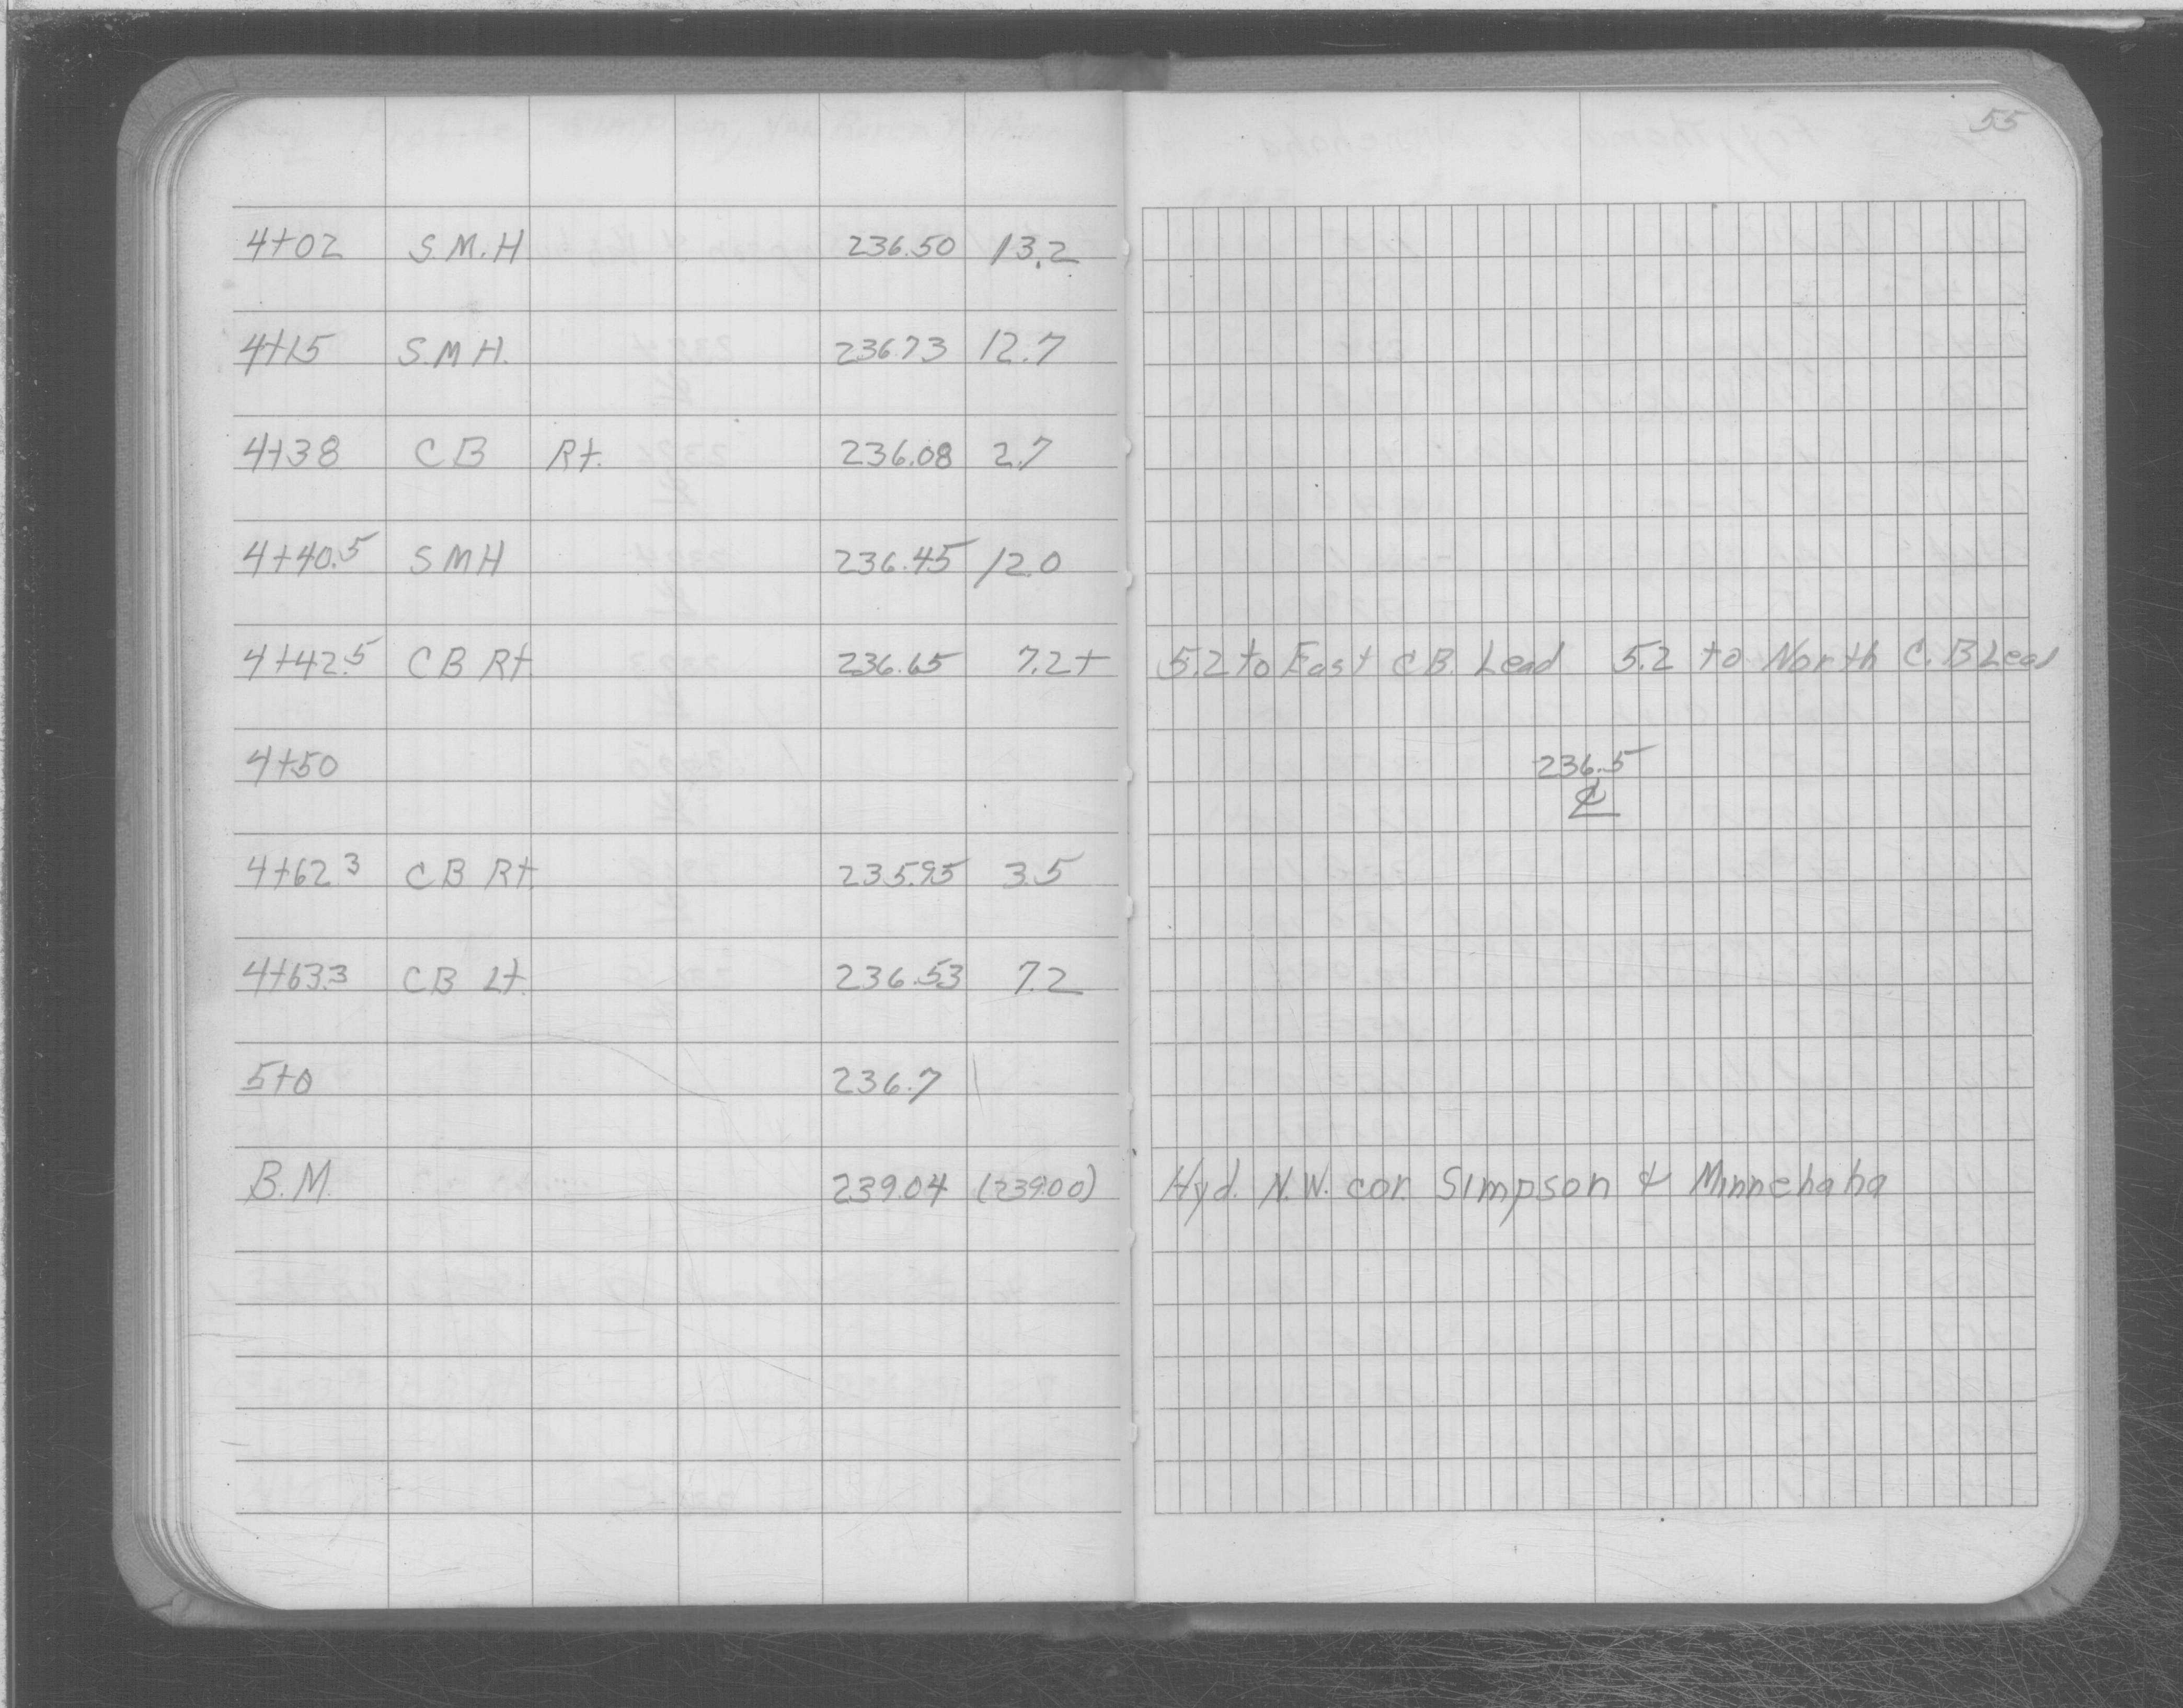 55
4+02 S.M.H 236.50 13.2
4+15 S.M.H. 236.73 12.7
4+38 CB Rt. 236.08 2.7
4+40.5 SMH 236.45 12.0
4+42.5 CB Rt 236.65 7.2+ 5.2 to East CB. Lead 5.2 to North C.B Lead
4+50 236.5
℄
4+62.3 CB Rt. 235.95 3.5
4+63.3 CB Lt. 236.53 7.2
5+0 236.7
B.M. 239.04 (239.00) Hyd. N.W. cor. Simpson & Minnehaha